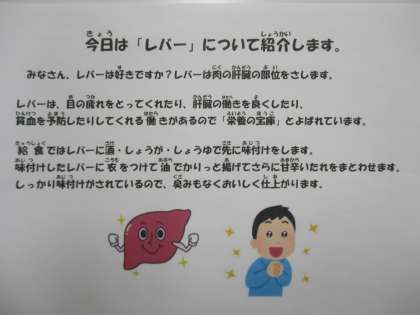 今日は「レバー」について紹介します。
みなさん、レバーは好きですか？レバーは肉の肝臓の部位をさします。
レバーは、目の疲れをとってくれたり、肝臓の働きを良くしたり、
貧血を予防したりしてくれる働きがあるので「栄養の宝庫」とよばれています。
給食ではレバーに酒・しょうが・しょうゆで先に味付けをします。
味付けしたレバーに衣をつけて油でかりっと揚げてさらに甘辛いたれをまとわせます。
しっかり味付けがされているので、臭みもなくおいしく仕上がります。